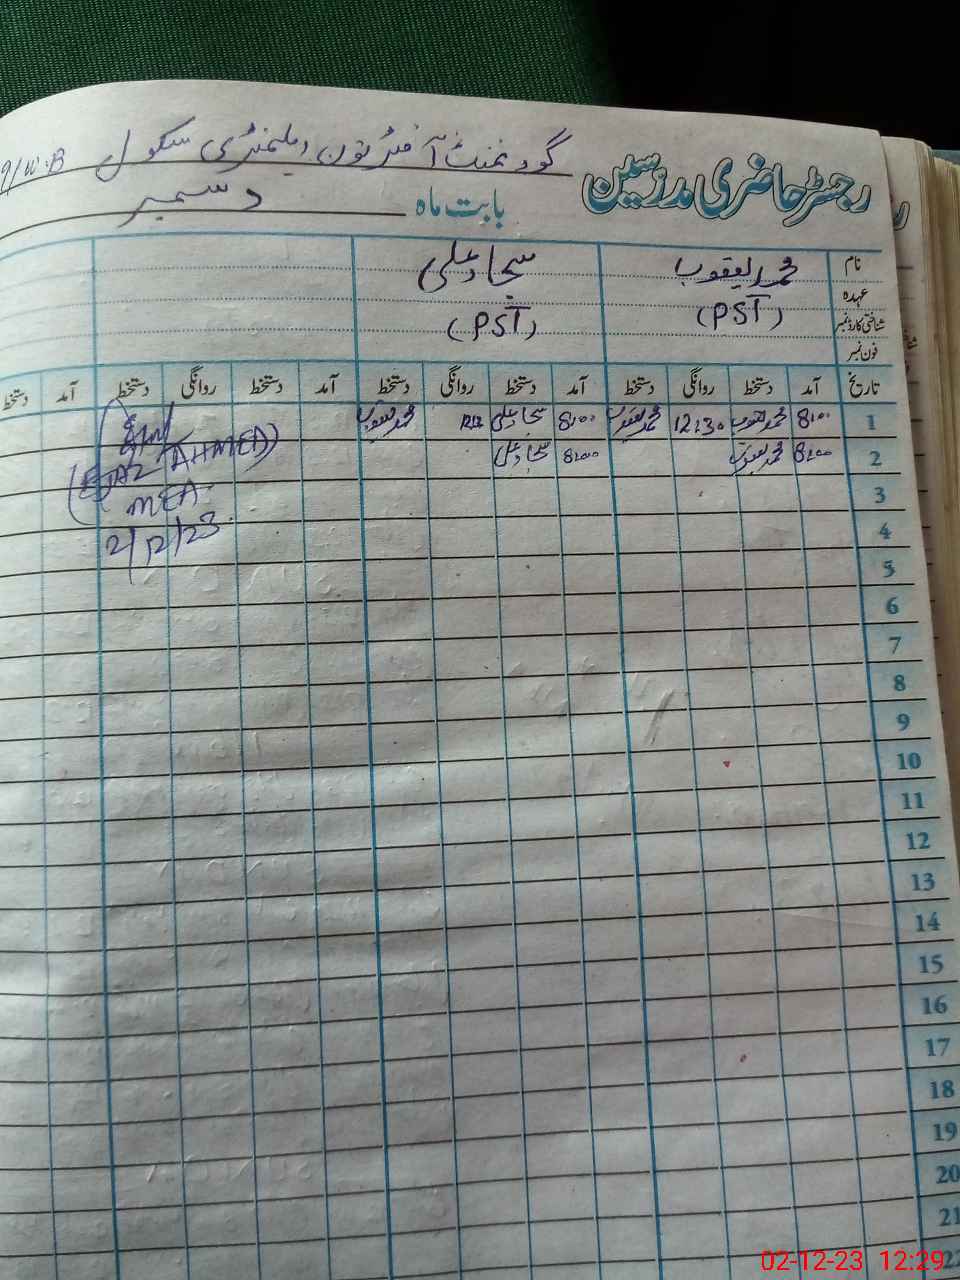 رجسٹر حاضری مدرسین گورنمنٹ آفٹر نون ایلیمنٹری سکول
بابت ماہ دسمبر
نام محمد یعقوب سجاد علی
عہدہ (PST) (PST)
شناختی کارڈ نمبر
فون نمبر
تاریخ آمد دستخط روانگی دستخط آمد دستخط روانگی دستخط آمد دستخط روانگی دستخط آمد دستخط
1 8:00 محمد یعقوب 12:30 محمد یعقوب 8:00 سجاد علی محمد یعقوب
2 8:00 محمد یعقوب 8:00 سجاد علی
(EJAZ AHMED)
MEA
2/12/23
3
4
5
6
7
8
9
10
11
12
13
14
15
16
17
18
19
20
21
22
02-12-23 12:29